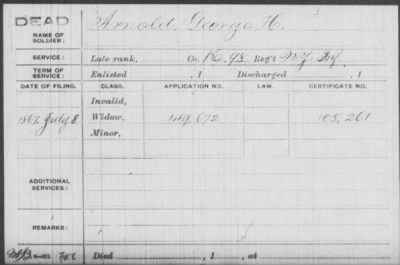 DEAD
NAME OF SOLDIER: Arnold, George H.
SERVICE: Late rank, Co. K, 98 Reg't N.Y. Inf.
TERM OF SERVICE: Enlisted , 1 Discharged , 1
DATE OF FILING. CLASS. APPLICATION NO. LAW. CERTIFICATE NO.
Invalid,
1867 July 8 Widow, 149,672 105,261
Minor,
ADDITIONAL SERVICES:
REMARKS:
Died , 1 , at